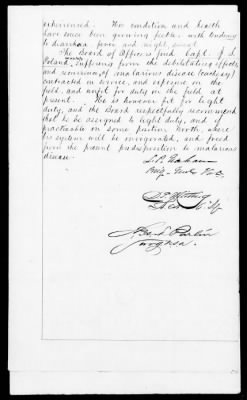 experienced. His condition and health
have since been growing feeble with tendency
to diarrhoea fever and night sweat.
The Board of Officers find Capt. J. S.
Poland suffering from the debilitating effects
and remains of malarious disease
contracted in service, and exposure in the
field, and unfit for duty in the field at
present. He is however fit for light
duty, and the Board respectfully recommend
that he be assigned to light duty, and if
practicable on some position North, where
his system will be invigorated, and freed
from the present predisposition to malarious
disease.
Graham
Brig. Genl.
Surgeon.